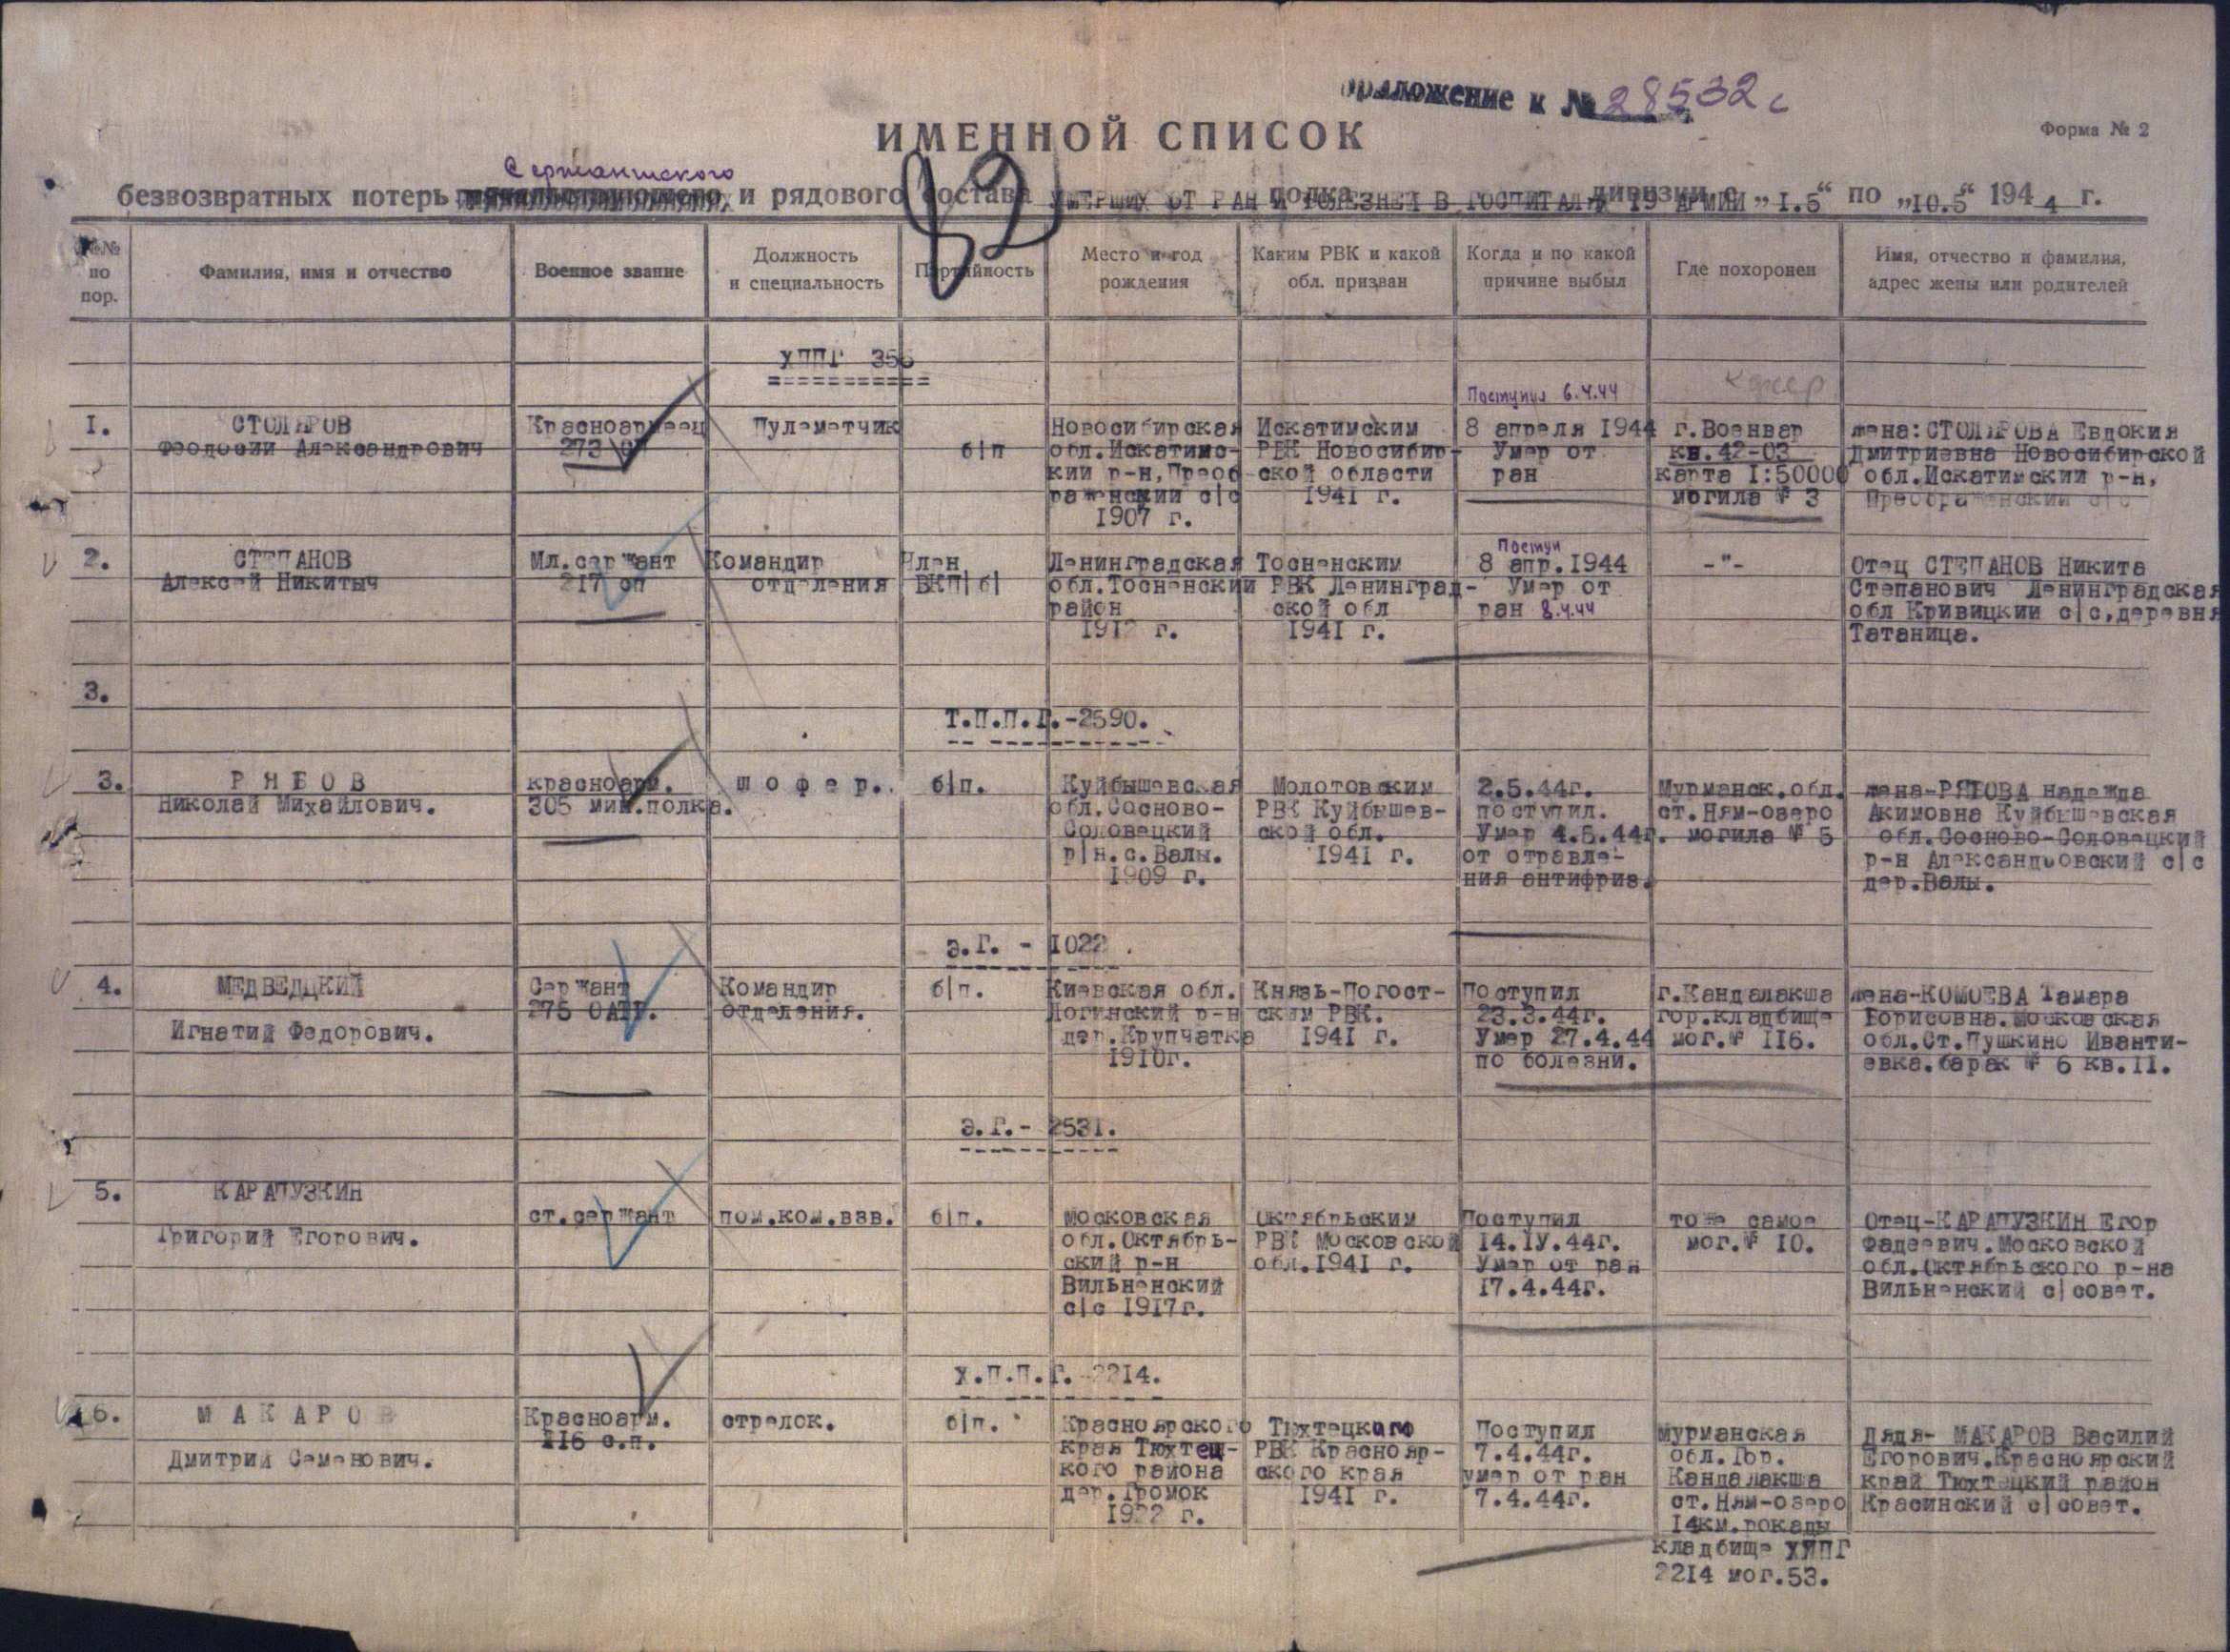 Приложение к № 28532с
ИМЕННОЙ СПИСОК
Форма № 2
Сержантского
безвозвратных потерь и рядового состава УМЕРШИХ ОТ РАН И БОЛЕЗНЕЙ В ГОСПИТАЛЯХ 19 АРМИИ „1.5“ по „10.5“ 1944 г.
42
№№ по пор.
Фамилия, имя и отчество
Военное звание
Должность и специальность
Партийность
Место и год рождения
Каким РВК и какой обл. призван
Когда и по какой причине выбыл
Где похоронен
Имя, отчество и фамилия, адрес жены или родителей
ХППГ 355
I.
СТОЛЯРОВ
Феодосий Александрович
Красноармеец
273 сп
Пулеметчик
б/п
Новосибирская
обл.Искатимс-
кий р-н,Преоб-
раженский с/с
1907 г.
Искатимским
РВК Новосибир-
ской области
1941 г.
Поступил 6.4.44
8 апреля 1944
Умер от
ран
г.Военвер
кв.42-03
карта I:50000
могила № 3
жена:СТОЛЯРОВА Евдокия
Дмитриевна Новосибирской
обл.Искатимский р-н,
Преображенский с/с
2.
СТЕПАНОВ
Алексей Никитыч
Мл.сержант
217 сп
Командир
отделения
Член
ВКП/б/
Ленинградская
обл.Тосненский
район
191 г.
Тосненским
РВК Ленинград-
ской обл
1941 г.
Поступ
8 апр.1944
Умер от
ран 8.4.44
-"-
Отец СТЕПАНОВ Никита
Степанович Ленинградская
обл Кривицкий с/с,деревня
Татаница.
3.
Т.П.П.Г.-2590.
3.
Р Я Б О В
Николай Михайлович.
красноарм.
305 мин.полка.
ш о ф е р.
б/п.
Куйбышевская
обл.Сосново-
Соловецкий
р/н.с.Валы.
1909 г.
Молотовским
РВК Куйбышев-
ской обл.
1941 г.
2.5.44г.
поступил.
Умер 4.5.44г.
от отравле-
ния антифриз.
Мурманск.обл.
ст.Ням-озеро
могила № 5
жена-РЯБОВА Надежда
Акимовна Куйбышевская
обл.Сосново-Соловецкий
р-н Александровский с/с
дер.Валы.
Э.Г. - 1022.
4.
МЕДВЕДЦКИЙ
Игнатий Федорович.
Сержант
275 ОАТР.
Командир
отделения.
б/п.
Киевская обл.
Логинский р-н
дер.Крупчатка
1910г.
Князь-Погост-
ским РВК.
1941 г.
Поступил
23.3.44г.
Умер 27.4.44
по болезни.
г.Кандалакша
гор.кладбище
мог.№ 116.
жена-КОМОЕВА Тамара
Борисовна.Московская
обл.Ст.Пушкино Иванти-
евка.барак № 6 кв.11.
Э.Г.- 2531.
5.
КАРАПУЗКИН
Григорий Егорович.
ст.сержант
пом.ком.взв.
б/п.
Московская
обл.Октябрь-
ский р-н
Вильненский
с/с 1917г.
Октябрьским
РВК Московской
обл.1941 г.
Поступил
14.IУ.44г.
Умер от ран
17.4.44г.
тоже самое
мог.№ 10.
Отец-КАРАПУЗКИН Егор
Фадеевич.Московской
обл.Октябрьского р-на
Вильненский с/совет.
Х.П.П.Г.-2214.
6.
М А К А Р О В
Дмитрий Семенович.
Красноарм.
116 с.п.
стрелок.
б/п.
Красноярского
края Тюхтец-
кого района
дер.Громок
1922 г.
Тюхтецкого
РВК Краснояр-
ского края
1941 г.
Поступил
7.4.44г.
умер от ран
7.4.44г.
Мурманская
обл.Гор.
Кандалакша
ст.Ням-озеро
14км.рокады
кладбище ХППГ
2214 мог.53.
Дядя- МАКАРОВ Василий
Егорович.Красноярский
край Тюхтецкий район
Красинский с/совет.